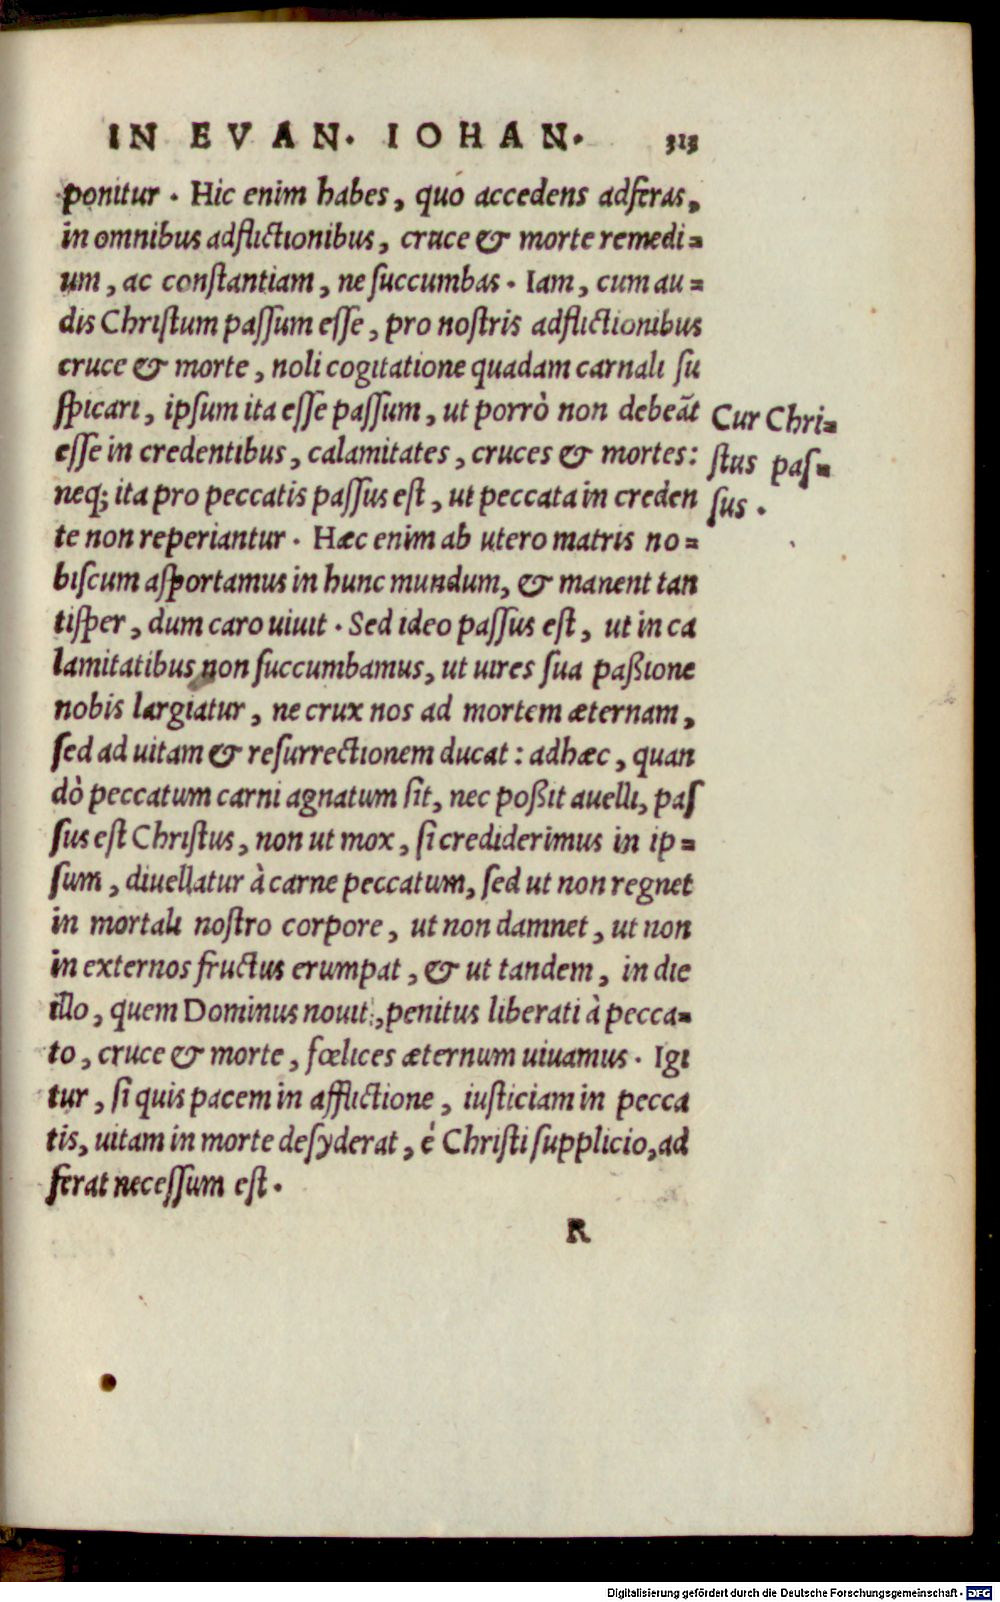 IN EVAN. IOHAN. 313
ponitur. Hic enim habes, quó accedens adferas,
in omnibus adflictionibus, cruce & morte remedi=
um, ac constantiam, ne succumbas. Iam, cum au=
dis Christum passum esse, pro nostris adflictionibus
cruce & morte, noli cogitatione quadam carnali su
spicari, ipsum ita esse passum, ut porrò non debeāt
esse in credentibus, calamitates, cruces & mortes:
neq; ita pro peccatis passus est, ut peccata in creden
te non reperiantur. Hæc enim ab utero matris no=
biscum asportamus in hunc mundum, & manent tan
tisper, dum caro uiuit. Sed ideo passus est, ut in ca
lamitatibus non succumbamus, ut uires sua paßione
nobis largiatur, ne crux nos ad mortem æternam,
sed ad uitam & resurrectionem ducat: adhæc, quan
dò peccatum carni agnatum sit, nec poßit auelli, pas
sus est Christus, non ut mox, si crediderimus in ip=
sum, diuellatur à carne peccatum, sed ut non regnet
in mortali nostro corpore, ut non damnet, ut non
in externos fructus erumpat, & ut tandem, in die
illo, quem Dominus nouit, penitus liberati à pecca=
to, cruce & morte, fœlices æternum uiuamus. Igi
tur, si quis pacem in afflictione, iusticiam in pecca
tis, uitam in morte desyderat, é Christi supplicio, ad
ferat necessum est.
Cur Chri=
stus pas=
sus.
R
Digitalisierung gefördert durch die Deutsche Forschungsgemeinschaft - DFG